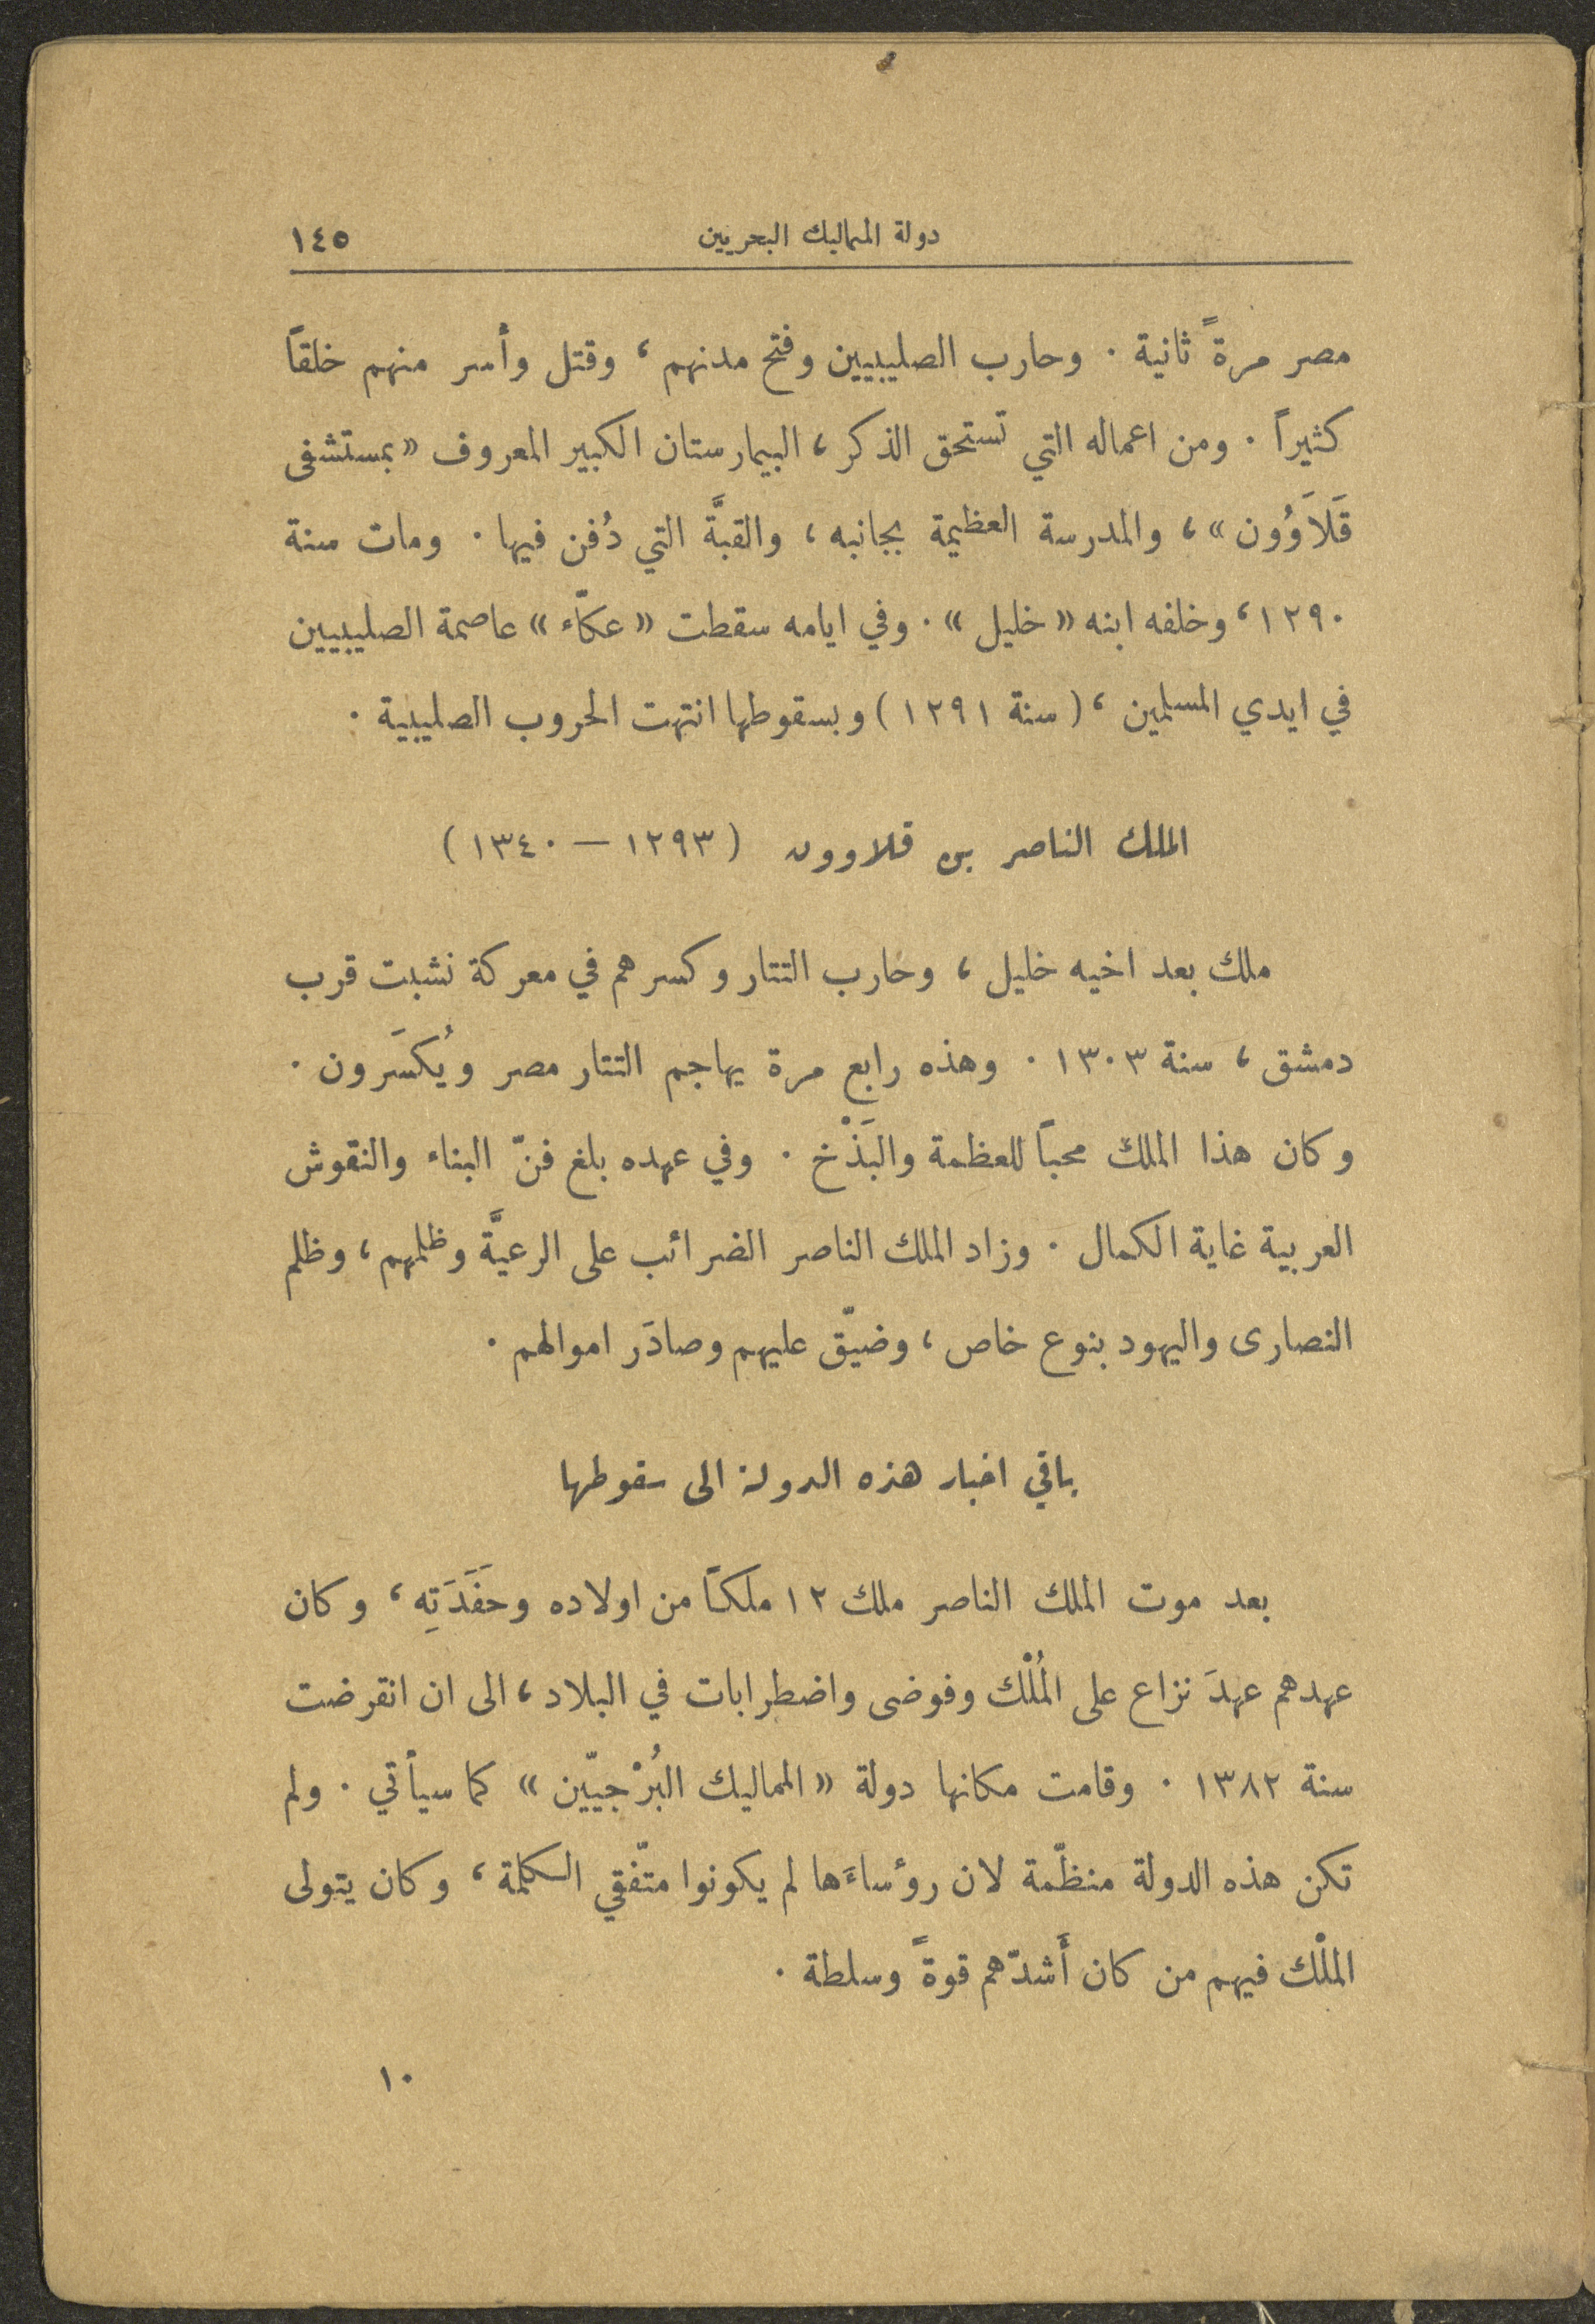 دولة المماليك البحريين ١٤٥
مصر مرةً ثانية . وحارب الصليبيين وفتح مدنهم ، وقتل وأسر منهم خلقاً
كثيراً . ومن اعماله التي تستحق الذكر ، البيمارستان الكبير المعروف «بمستشفى
قَلَاوُون» ، والمدرسة العظيمة بجانبه ، والقبَّة التي دُفن فيها . ومات سنة
١٢٩٠ ، وخلفه ابنه «خليل» . وفي ايامه سقطت «عكّاء» عاصمة الصليبيين
في ايدي المسلمين ، (سنة ١٢٩١) وبسقوطها انتهت الحروب الصليبية .
الملك الناصر بن قلاوون (١٢٩٣ — ١٣٤٠)
ملك بعد اخيه خليل ، وحارب التتار وكسرهم في معركة نشبت قرب
دمشق ، سنة ١٣٠٣ . وهذه رابع مرة يهاجم التتار مصر ويُكسَرون .
وكان هذا الملك محباً للعظمة والبَذْخ . وفي عهده بلغ فنّ البناء والنقوش
العربية غاية الكمال . وزاد الملك الناصر الضرائب على الرعيَّة وظلمهم ، وظلم
النصارى واليهود بنوع خاص ، وضيّق عليهم وصادَر اموالهم .
باقي اخبار هذه الدولة الى سقوطها
بعد موت الملك الناصر ملك ١٢ ملكاً من اولاده وحَفَدَتِه ، وكان
عهدهم عهدَ نزاع على المُلْك وفوضى واضطرابات في البلاد ، الى ان انقرضت
سنة ١٣٨٢ . وقامت مكانها دولة «المماليك البُرْجيّين» كما سيأتي . ولم
تكن هذه الدولة منظّمة لان رؤساءَها لم يكونوا متّفقي الكلمة ، وكان يتولى
الملْك فيهم من كان أَشدّهم قوةً وسلطة .
١٠